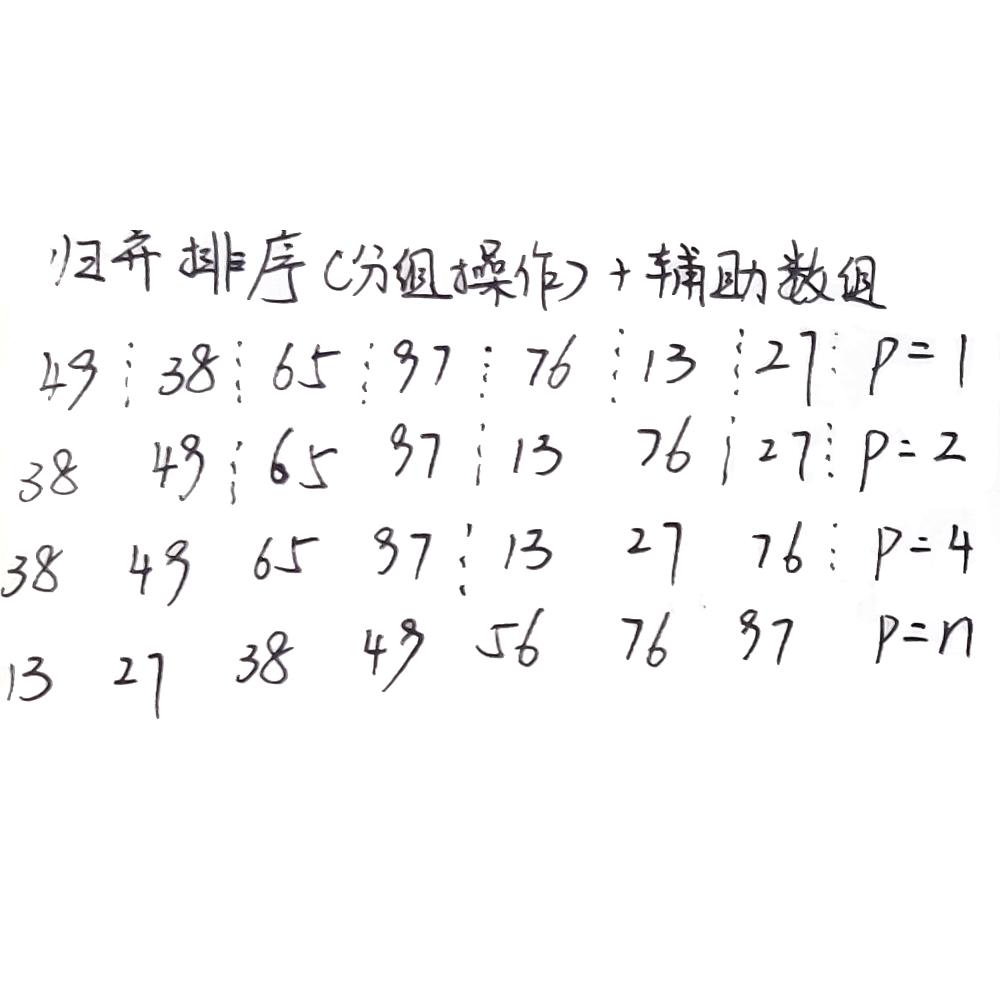 归并排序(分组操作)+辅助数组
49 38 65 97 76 13 27 p=1
38 49 65 97 13 76 27 p=2
38 49 65 97 13 27 76 p=4
13 27 38 49 56 76 97 p=n